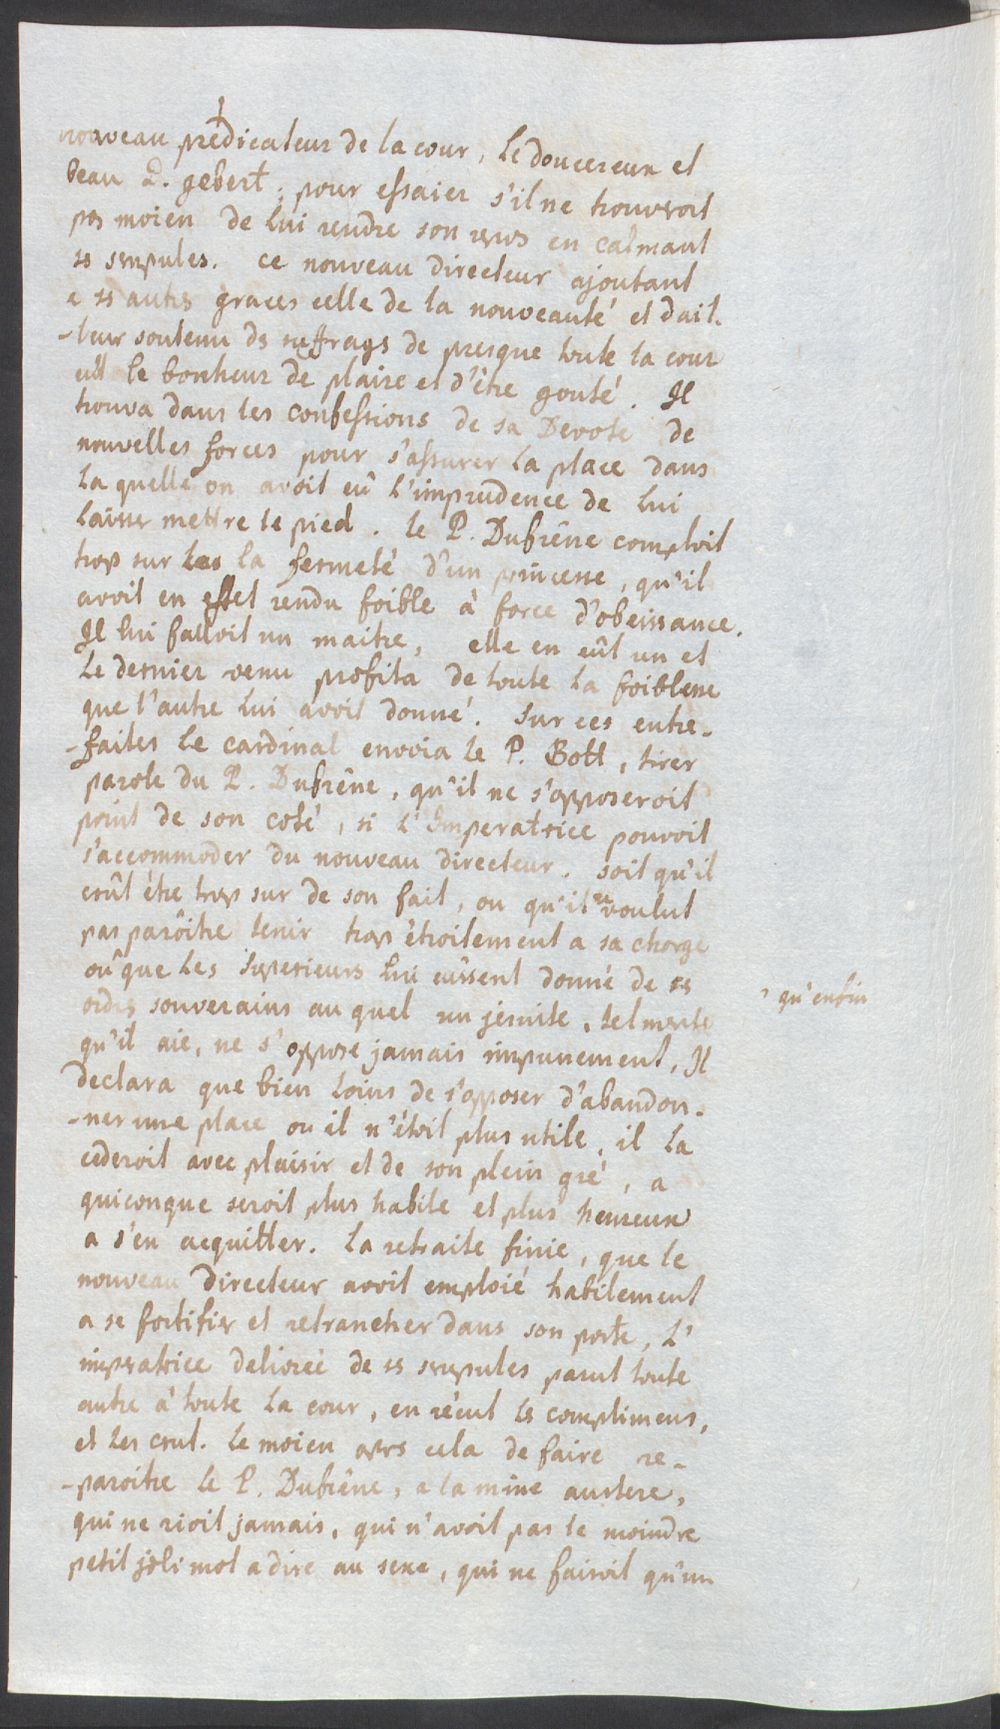 nouveau prédicateur de la cour, le doucereux et
beau P. gebert, pour essaier s'il ne trouveroit
pas moien de lui rendre son repos en calmant
ses scrupules. ce nouveau directeur ajoutant
a ses autres graces celle de la nouveauté et d'ail-
-leur soutenu des suffrages de presque toute la cour
eût le bonheur de plaire et d'être gouté. Il
trouva dans les confessions de sa Devote de
nouvelles forces pour s'assurer la place dans
la quelle on avoit eû l'imprudence de lui
laisser mettre le pied. le P. Dufrêne comptoit
trop sur la fermeté d'un princesse, qu'il
avoit en effet rendu foible à force d'obeissance.
Il lui falloit un maitre, elle en eût un et
le dernier venu profita de toute la foiblesse
que l'autre lui avoit donné. Sur ces entre-
-faites le cardinal envoia le P. Bott, tirer
parole du P. Dufrêne, qu'il ne s'opposeroit
point de son coté, si l'Imperatrice pouvoit
s'accommoder du nouveau directeur. soit qu'il
crût être trop sur de son fait, ou qu'il ne voulut
pas parôitre tenir trop étroitement a sa charge
oû que les superieurs lui eûssent donné de ses
ordres souverains au quel un jesuite, tel merite
qu'il aie, ne s'oppose jamais impunement, Il
declara que bien loins de s'opposer d'abandon-
-ner une place ou il n'étoit plus utile, il la
cederoit avec plaisir et de son plein gré, a
quiconque seroit plus habile et plus heureux
a s'en acquitter. la retraite finie, que le
nouveau directeur avoit emploié habilement
a se fortifier et retrancher dans son poste, l'
imperatrice delivrée de ses scrupules parut toute
autre à toute la cour, en récut les complimens,
et les crut. le moien après cela de faire re-
-paroitre le P. Dufrêne, a la mine austere,
qui ne rioit jamais, qui n'avoit pas le moindre
petit joli mot a dire au sexe, qui ne faisoit qu'un
qu'enfin